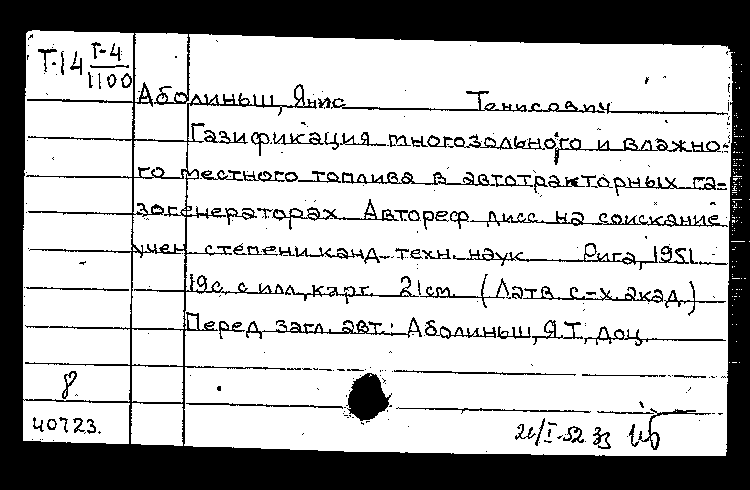 Т-14 Г-4
1100
Аболиньш, Янис Тенисович
Газификация многозольного и влажно-
го местного топлива в автотракторных га-
зогенераторах. Автореф. дисс. на соискание
учен. степени канд. техн. наук Рига, 1951.
19с. с илл., карт. 21см. (Латв. с-х. акад.)
Перед загл. авт.: Аболиньш, Я.Т., доц.
8
40723.
21/I-52